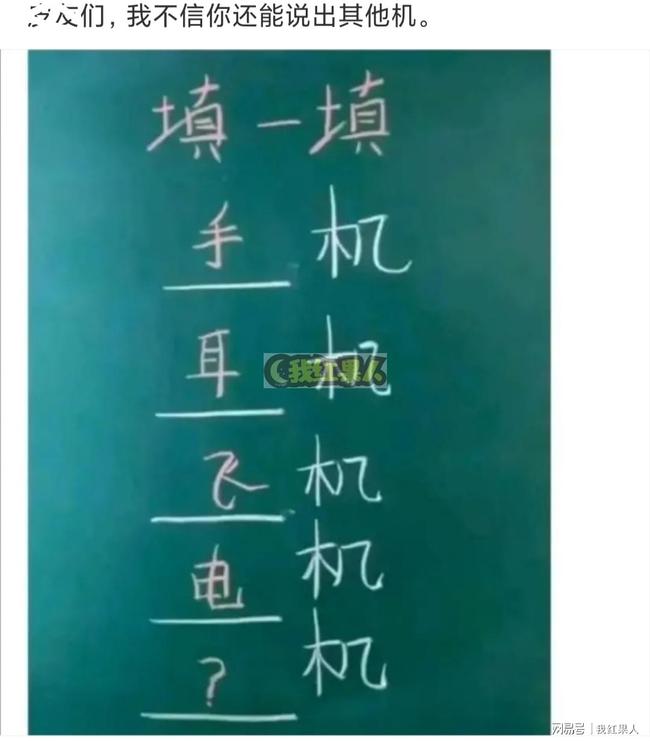 们，我不信你还能说出其他机。
填一填
手机
耳机
我红果人
飞机
电机
？机
网易号 | 我红果人